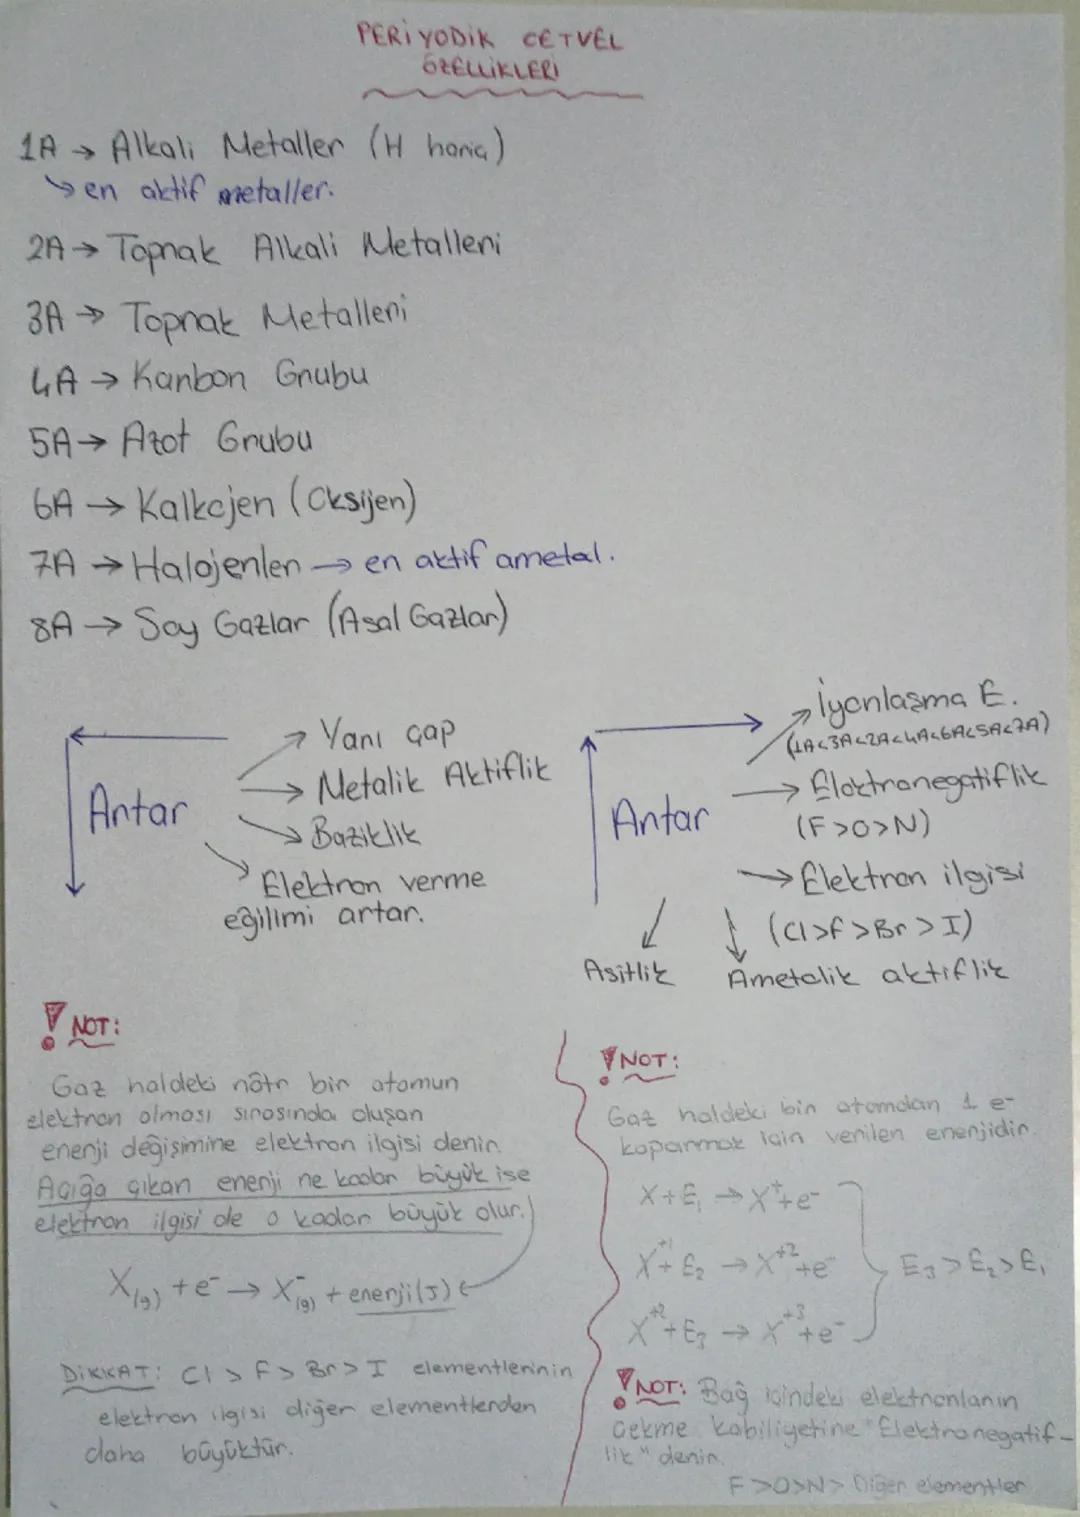 PERİYODİK CETVEL
ÖZELLİKLERİ
1A → Alkali Metaller (H hariç)
↳ en aktif metaller.
2A → Toprak Alkali Metalleri
3A → Toprak Metalleri
4A → Karbon Grubu
5A → Azot Grubu
6A → Kalkojen (Oksijen)
7A → Halojenler → en aktif ametal.
8A → Soy Gazlar (Asal Gazlar)
Artar
→ Yarı çap
→ Metalik Aktiflik
→ Baziklik
→ Elektron verme
eğilimi artar.
Artar
→ İyonlaşma E.
(1A<3A<2A<4A<6A<5A<7A)
→ Elektronegatiflik
(F>O>N)
→ Elektron ilgisi
(Cl>F>Br>I)
Asitlik
Ametalik aktiflik
! NOT:
Gaz haldeki nötr bir atomun
elektron alması sırasında oluşan
enerji değişimine elektron ilgisi denir.
Açığa çıkan enerji ne kadar büyük ise
elektron ilgisi de o kadar büyük olur.
X(g) + e⁻ → X⁻(g) + enerji(J)
DİKKAT: Cl > F > Br > I elementlerinin
elektron ilgisi diğer elementlerden
daha büyüktür.
! NOT:
Gaz haldeki bir atomdan 1 e-
koparmak için verilen enerjidir.
X + E₁ → X⁺ + e⁻
X⁺¹ + E₂ → X⁺² + e⁻
E₃ > E₂ > E₁
X⁺² + E₃ → X⁺³ + e⁻
! NOT: Bağ içindeki elektronların
çekme kabiliyetine "Elektronegatif-
lik" denir.
F>O>N> Diğer elementler